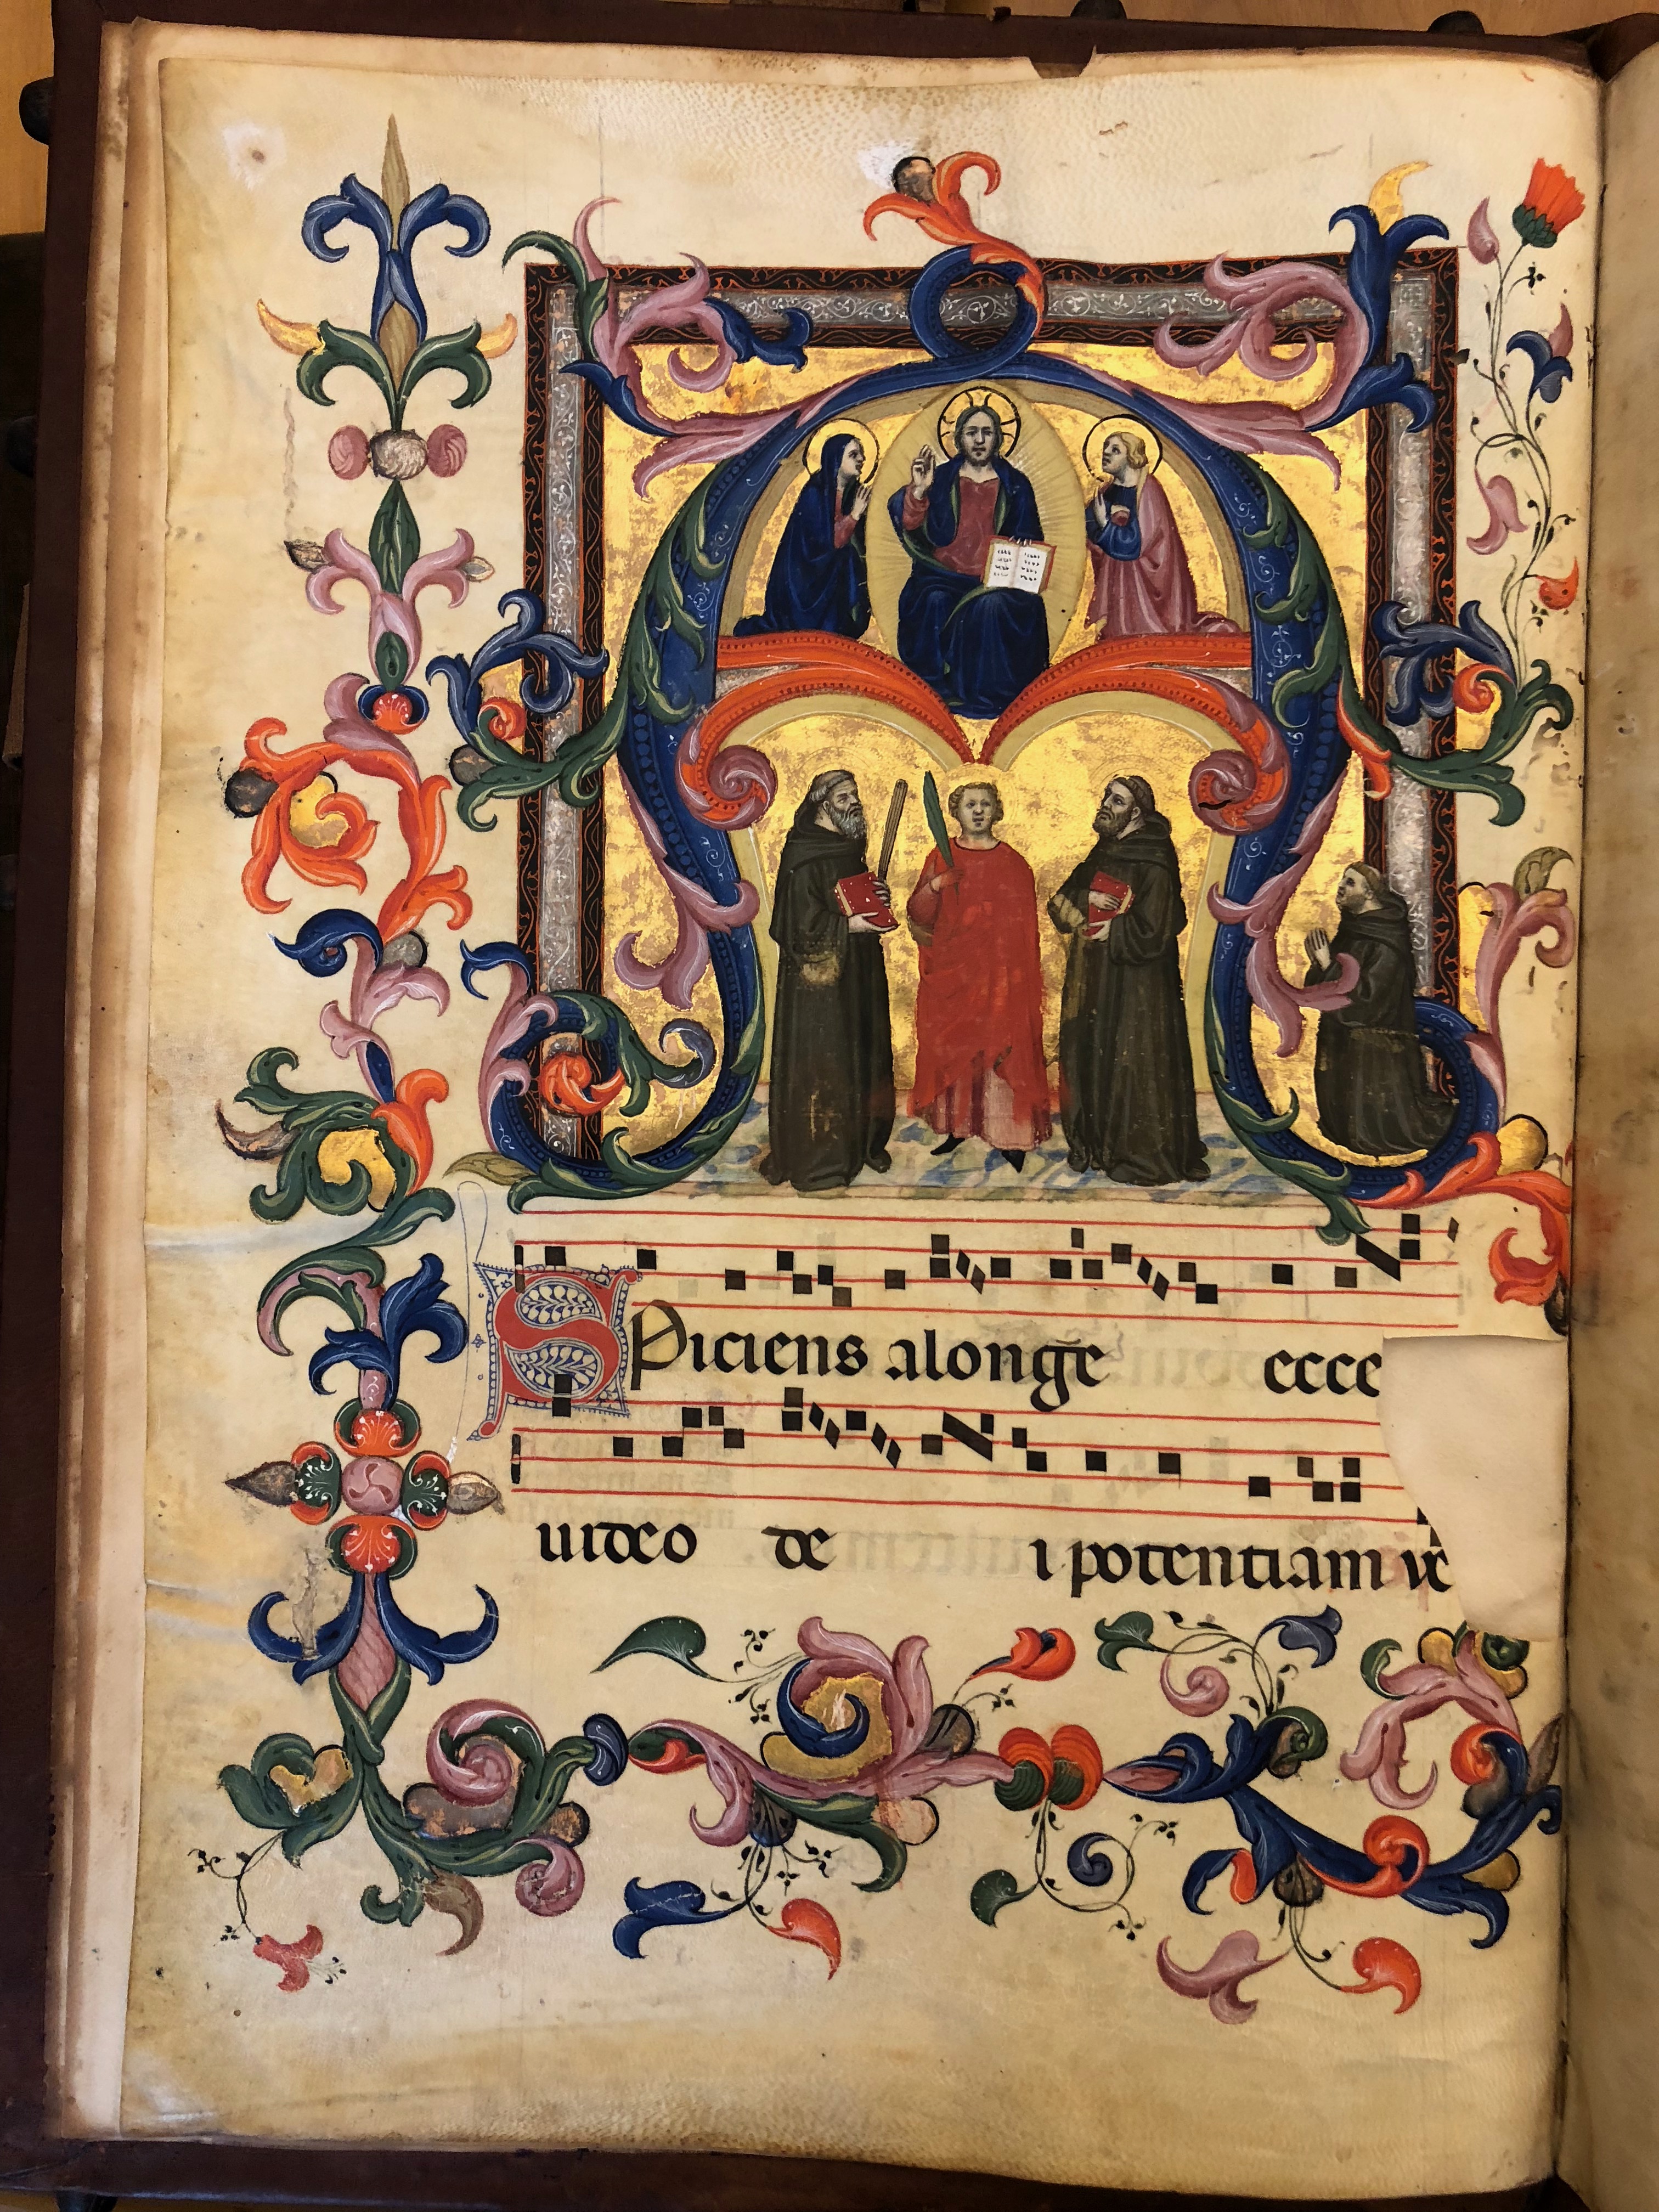 ASPiciens alonge ecce
uideo de i potentiam ue